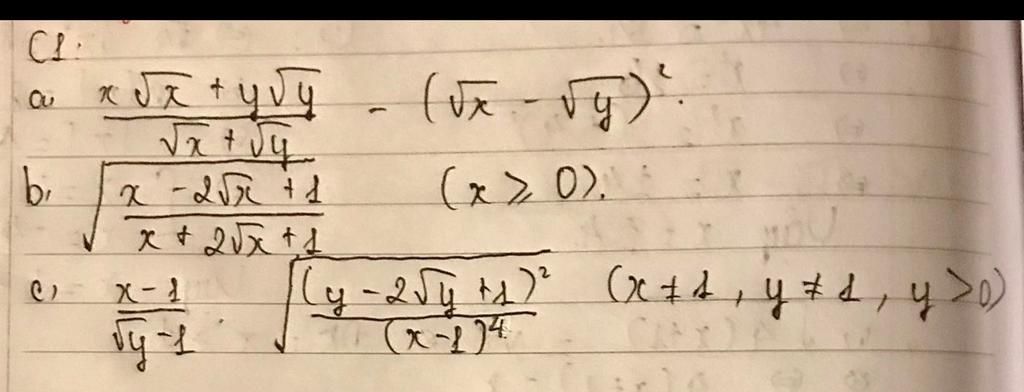 C1:
a, \frac{x\sqrt{x} + y\sqrt{y}}{\sqrt{x} + \sqrt{y}} - (\sqrt{x} - \sqrt{y})^2.
b, \sqrt{\frac{x - 2\sqrt{x} + 1}{x + 2\sqrt{x} + 1}} (x ≥ 0).
c, \frac{x-1}{\sqrt{y}-1} . \sqrt{\frac{(y - 2\sqrt{y} + 1)^2}{(x-1)^4}} (x ≠ 1, y ≠ 1, y > 0)